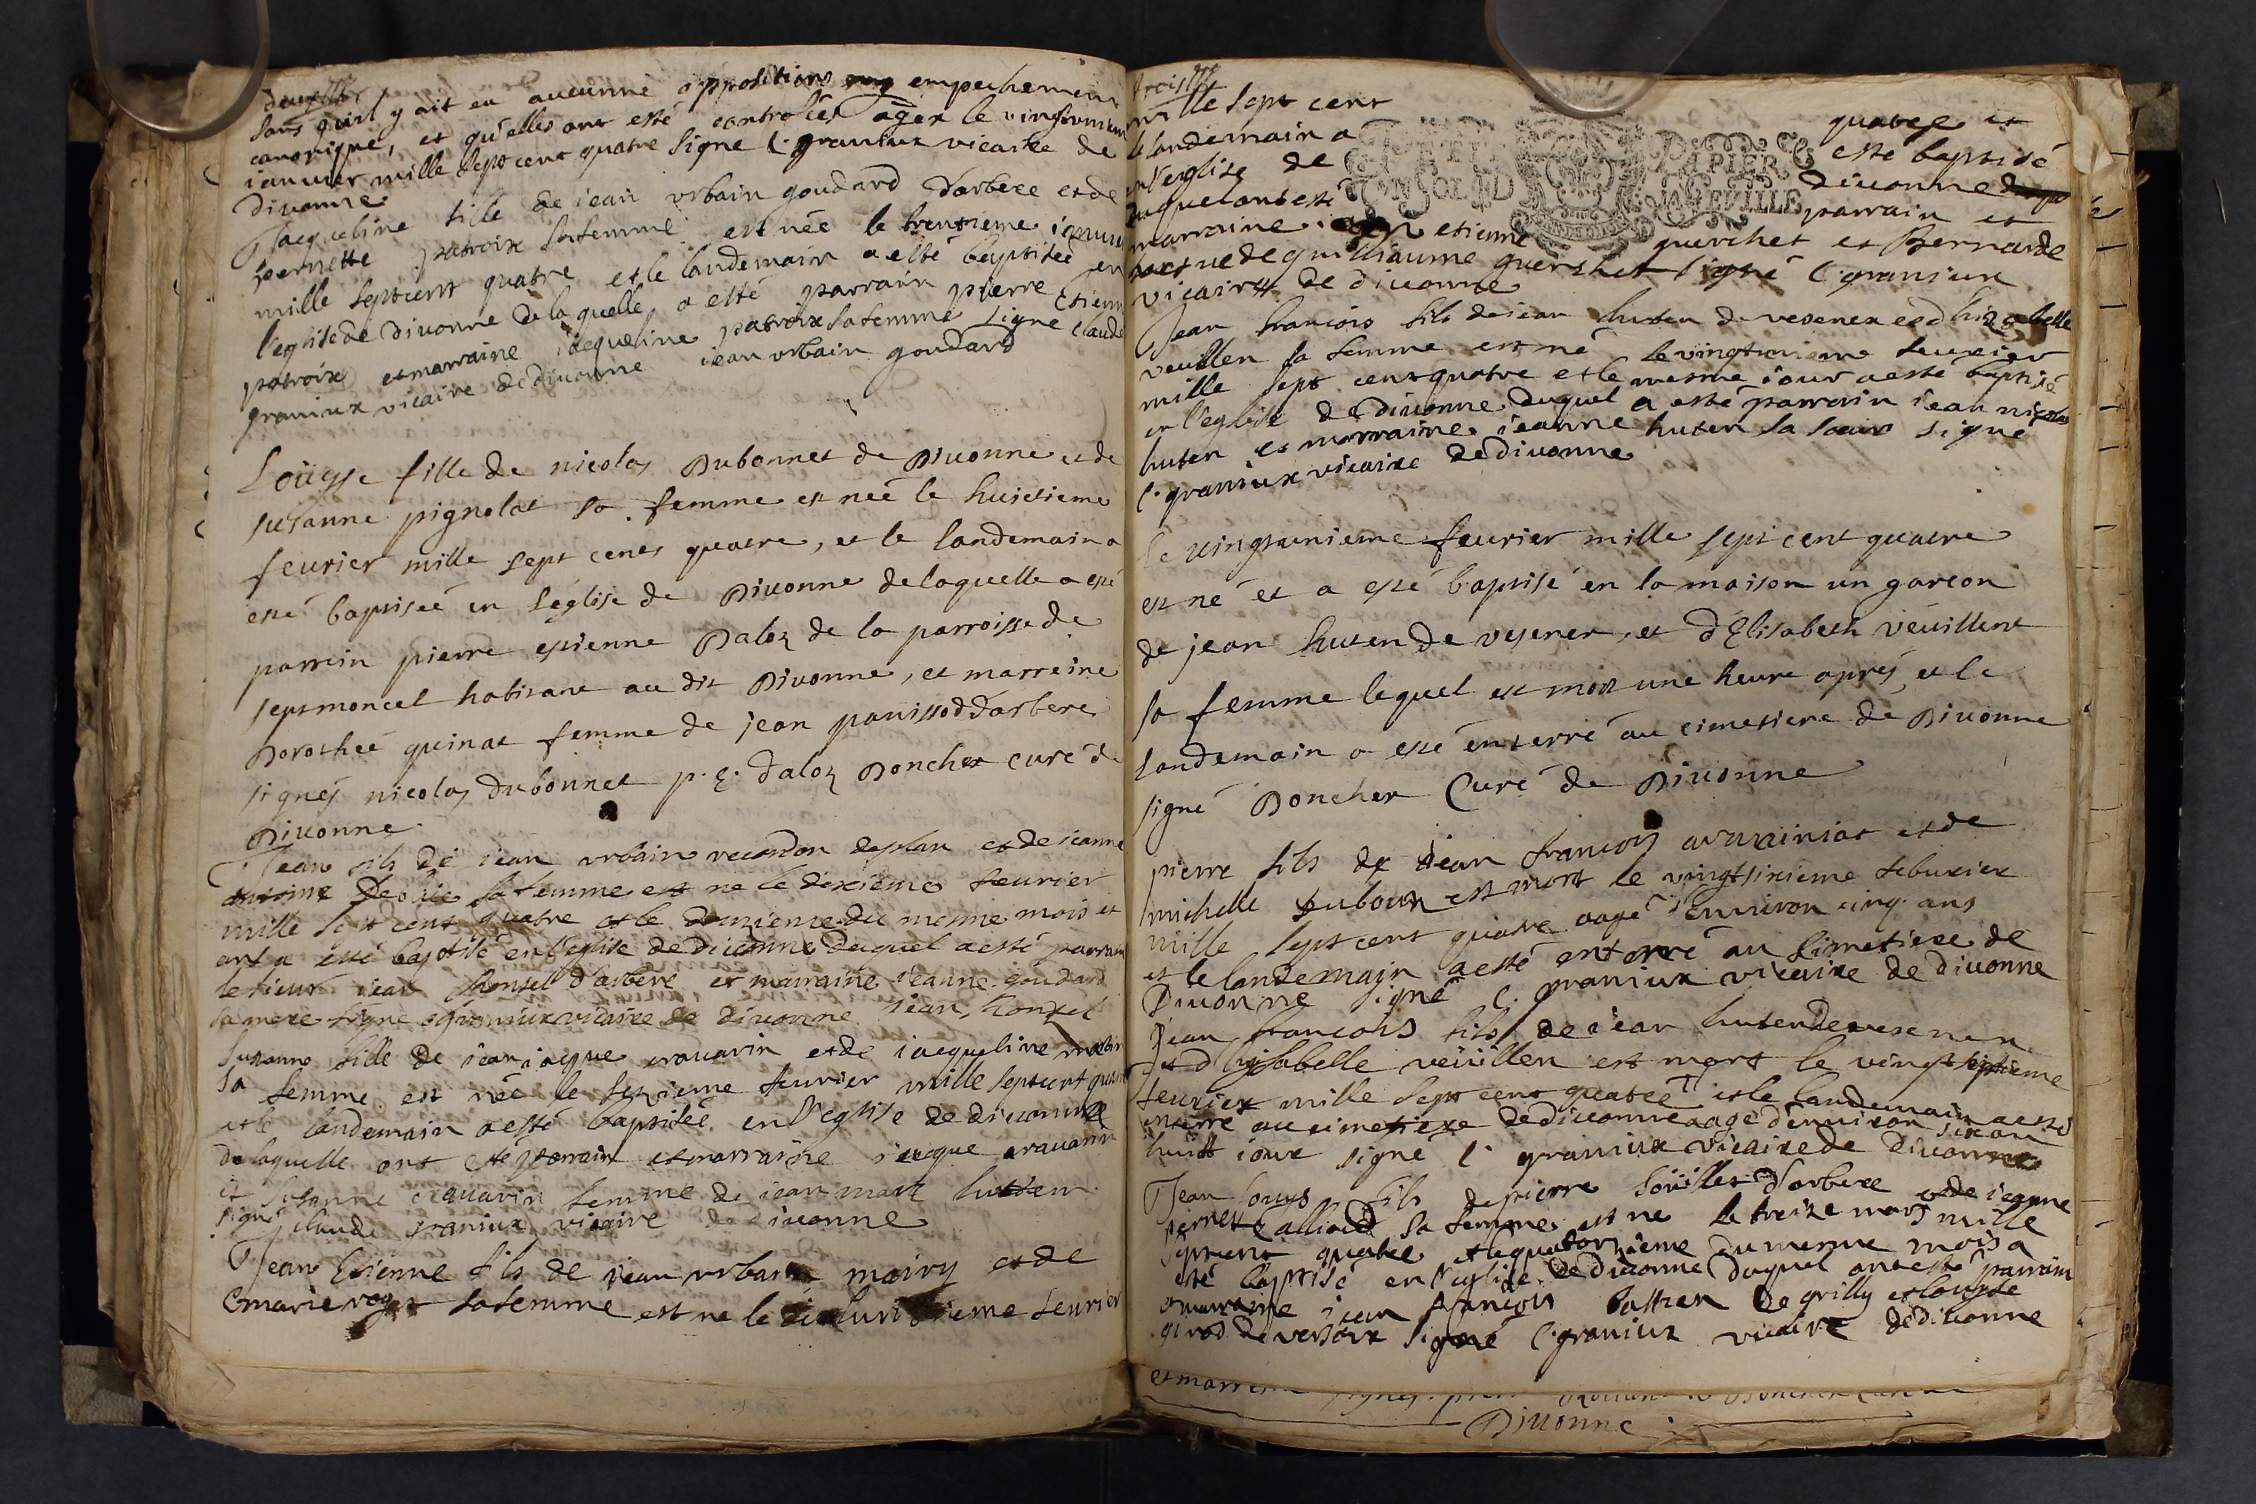 sans quil y ait eu aucunne oppositions empechement
canonique, et quelles ont esté controlées a gex le vingtunieme
ianuier mille sept cent quatre signe C. graniux vicaire de
diuonne
Jacqueline fille de iean vrbain goudard d'arbere et de
pernette patroix sa femme est née le trentieme ianuier
mille sept cent quatre et le landemain a esté baptisée en
l'eglise de diuonne de la quelle a esté parrain pierre Etienne
patroix et marraine iacqueline patroix sa femme signe claude
graniux vicaire de diuonne iean vrbain goudard
Loüyse fille de nicolas Dubonnet de Diuonne et de
susanne pignolat sa femme est neé le huictieme
feurier mille sept cents quatre, et le landemain a
esté baptiseé en l'eglise de Diuonne de laquelle a esté
parrein pierre estienne Daloz de la parroisse de
septmoncel habitant au dit Diuonne, et marreine
Dorotheé quinat femme de jean panissod d'arbere
signés nicolas dubonnet p. E. daloz Doncher curé de
Diuonne.
Jean fils de iean vrbain recordon de plan et de ieanne
sa femme est ne le dixieme feurier
mille sept cent quatre et le douzieme du mesme mois et
an a esté baptisé en l'eglise de diuonne duquel a esté parrain
le sieur iean d'arbere et marraine ieanne goudard
sa mere signe C graniux vicaire de diuonne iean
susanne fille de iean iacque crauarin et de iacqueline
sa femme est née le feurier mille sept cent quatre
et le landemain a esté baptisée en l'eglise de diuonne
de laquelle ont esté parrain et marraine iacque crauarin
et susanne crauarin femme de iean marc huten
signé claude graniux vicaire de diuonne
Jean Etienne fils de iean vrbain moiry et de
marie roger sa femme est ne le dixhuictieme feurier
mille sept cent quatre et
le landemain a esté baptisé
en l'eglise de diuonne
duquel ont esté parrain et
marraine etienne guerchet et Bernarde
de guilliaume guerchet signé C. graniux
vicaire de diuonne
Jean francois fils de iean huten de vesenex et d'hisabelle
veuillen sa femme est né le vingtunieme feurier
mille sept cent quatre et le mesme iour a esté baptisé
en l'eglise de diuonne duquel a esté parrain iean nicolas
huten et marraine ieanne huten sa soeur signé
C. graniux vicaire de diuonne
Le vingtunieme feurier mille sept cent quatre
est né et a esté baptisé en la maison un garcon
de jean huten de vesener, et d'Elisabeth veüillent
sa femme lequel est mort une heure aprés, et le
landemain a esté enterré au cimetiere de Diuonne
signé Doncher Curé de Diuonne
pierre fils de iean francois et de
michelle Dubour est mort le vingtsixieme feburier
mille sept cent quatre aagé d'enuiron cinq ans
et le landemain a esté enterré au simetiere de
Diuonne signé C. graniux vicaire de diuonne
Jean francois fils de iean huten de vesenen
et d'hisabelle veüillen est mort le vingtseptieme
feurier mille sept cent quatre et le landemain a esté
enterré au cimetiere de diuonne aagé d'enuiron six ou
huict iour signé C. graniux vicaire de diuonne
Jean louys fils de pierre d'arbere et de ieanne
pernette sa femme est ne le treize mars mille
sept cent quatre et le quatorzieme du mesme mois a
esté baptisé en l'eglise de diuonne duquel ont esté parrain
et marraine iean françois de grilly et louyse
girod de versoix signé C. graniux vicaire de diuonne
Diuonne